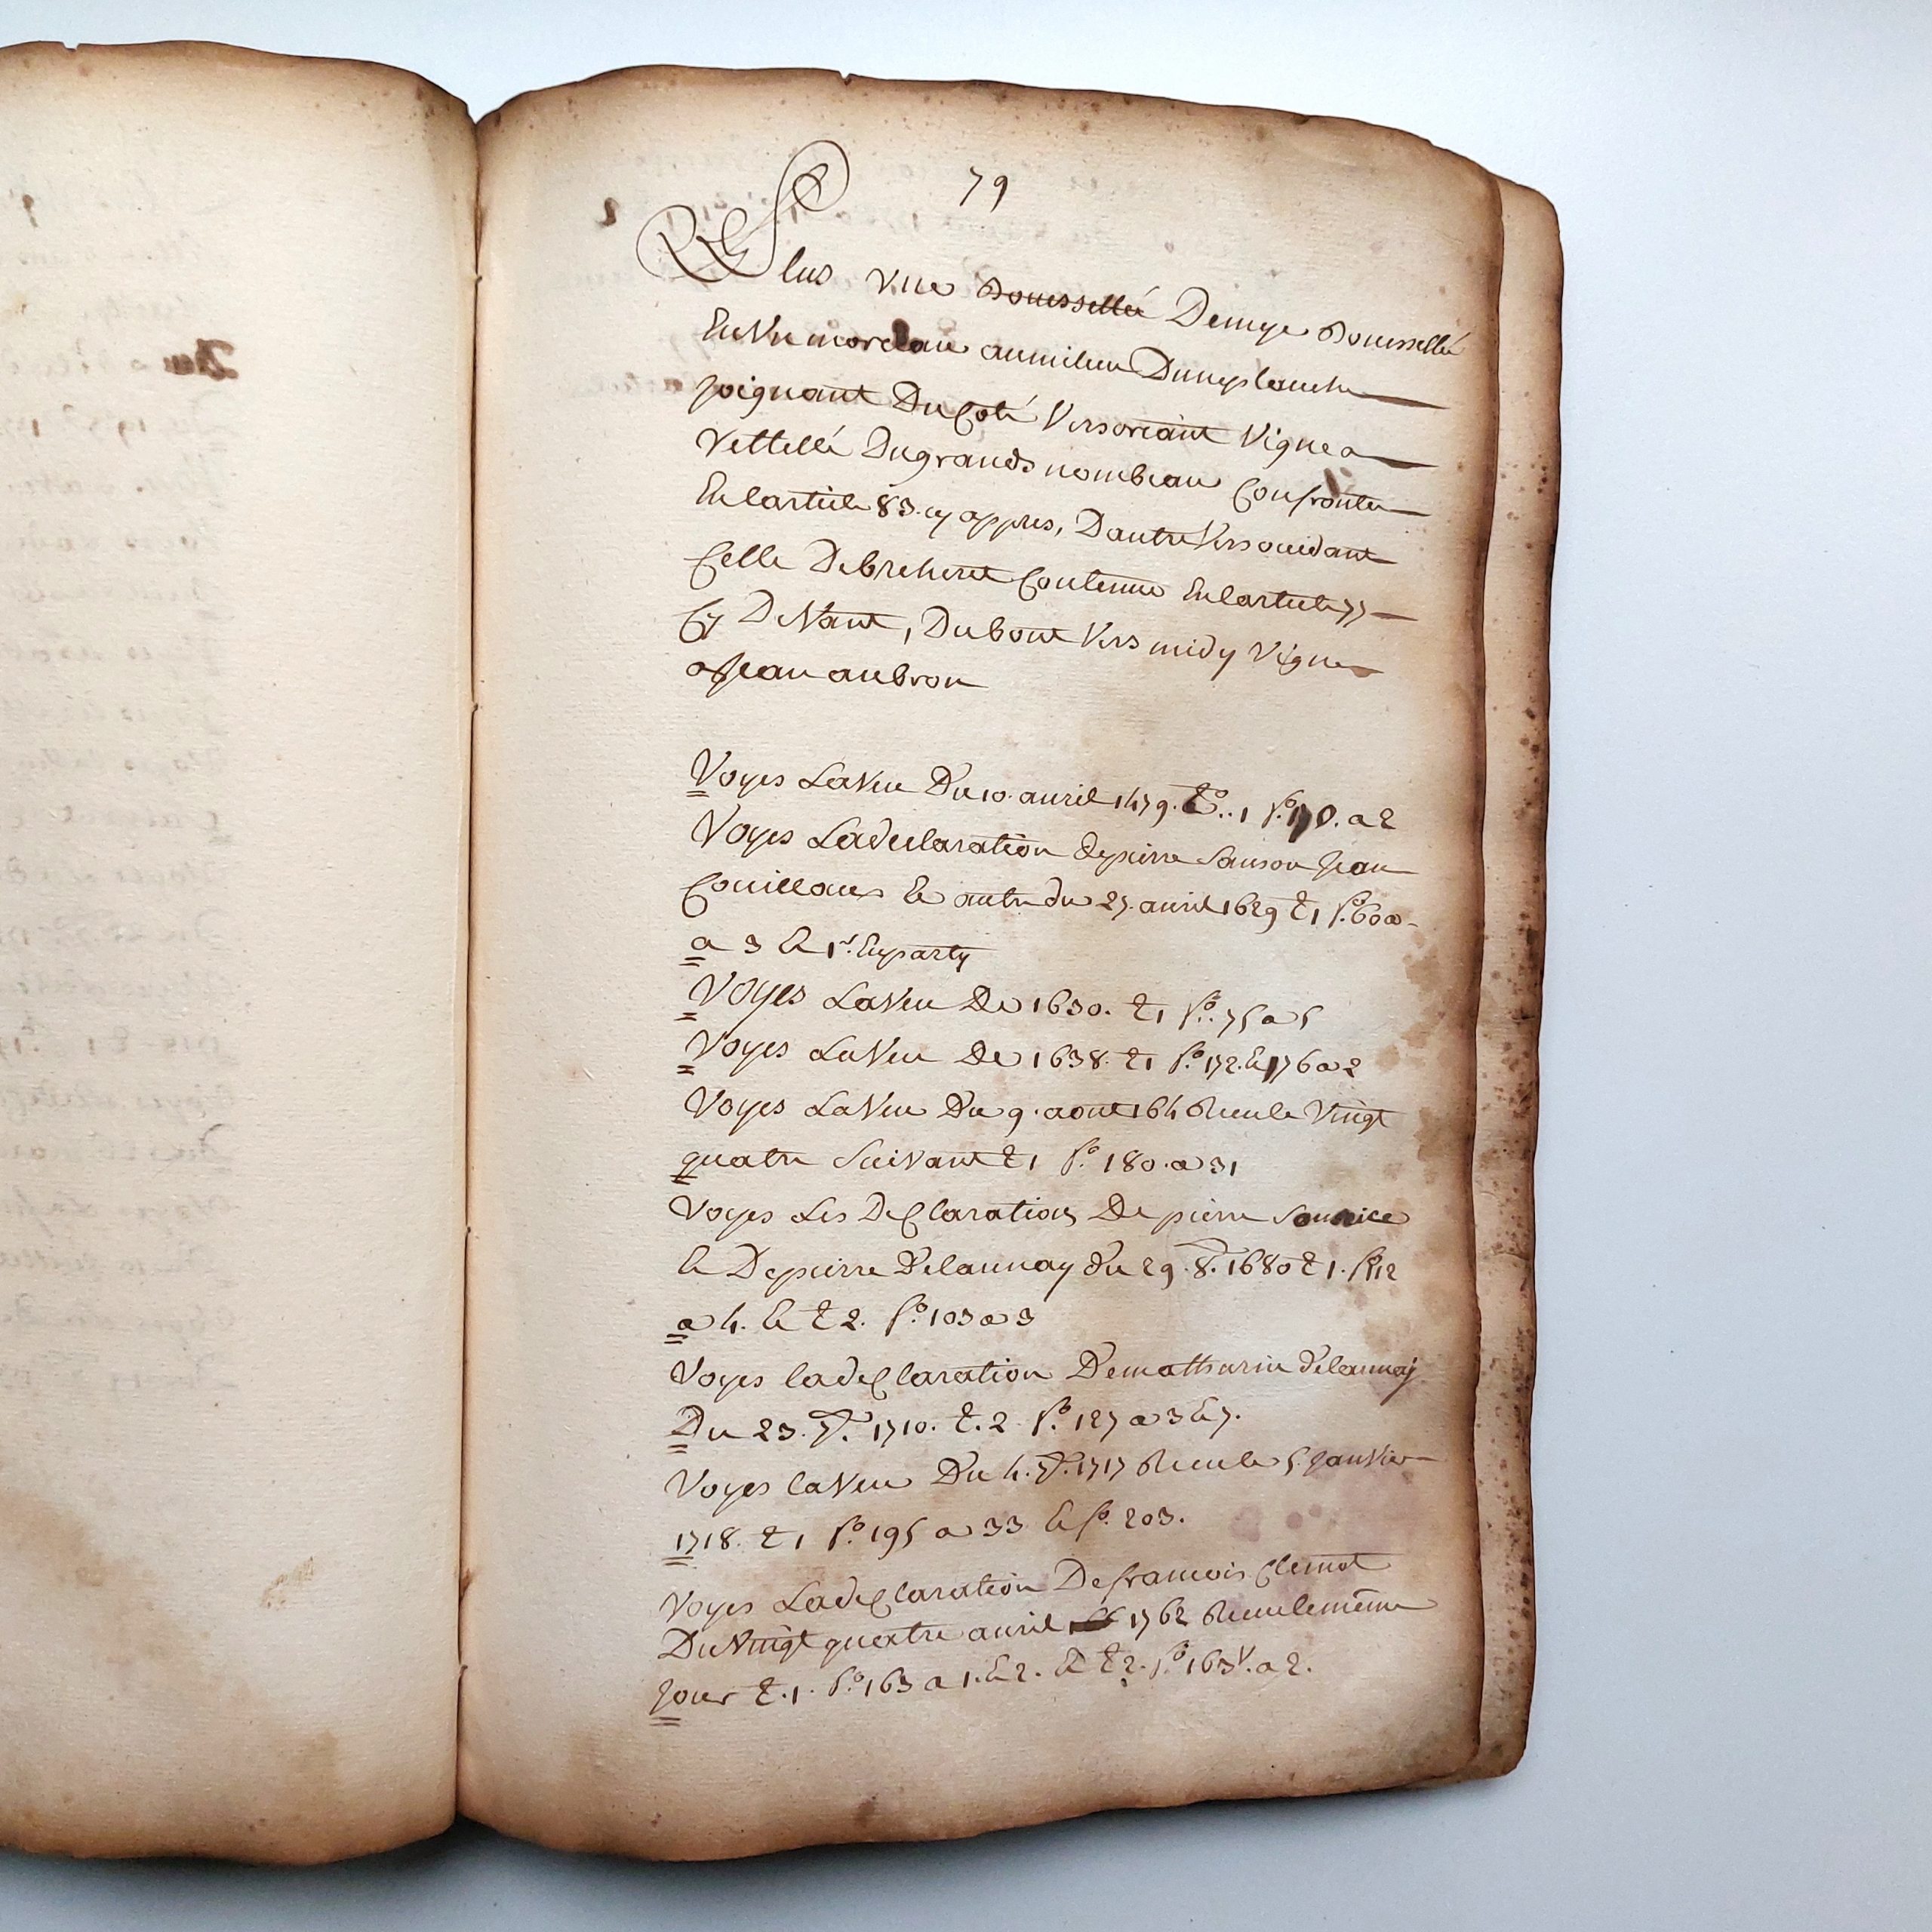 79
Plus Une Bouesselleé Demye Bouesselleé
En Un morceau au milieu Dune planche
Joignant Du Coté Vers oriant Vigne a
Du grands nombeau Confrontee
En larticle 83. cy appres, Dautre Vers occidant
Celle De breheret Contenue En larticle 77
Cy DeVant, Du bout Vers midy Vigne
a Jean aubron
Voyes La Veu Du 10. auril 1479. to. 1 fo. a 2
Voyes La declaration de pierre Sanson Jean
Couillaux Et autre du 27. auril 1629 t 1 fo. 60 a
a 3 Et 1r. En party
Voyes La Veu De 1630. t 1 fo. 75 a 5
Voyes La Veu De 1638. t 1 fo. 172. Et 176 a 2
Voyes La Veu Du 9. aout 164 Rendue le Vingt
quatre Suivant t 1 fo. 180. a 31
Voyes Les DeClarations De pierre
Et De pierre Delaunay du 29. 8. 1680 t 1. fo. 112
a 4. Et t 2. fo. 103 a 3
Voyes la deClaration De mathurin Delaunay
Du 23. 7re. 1710. t. 2. fo. 127 a 3 Et 7.
Voyes la Veu Du 4. 7re. 1717 Rendue le 5 Janvier
1718. t 1 fo. 195 a 33 Et fo. 203.
Voyes La deClaration De francois Clemot
Du Vingt quatre auril 1762 Rendue le même
Jour t. 1. fo. 163 a 1. Et 2. Et t 2. fo. 163 V. a 2.